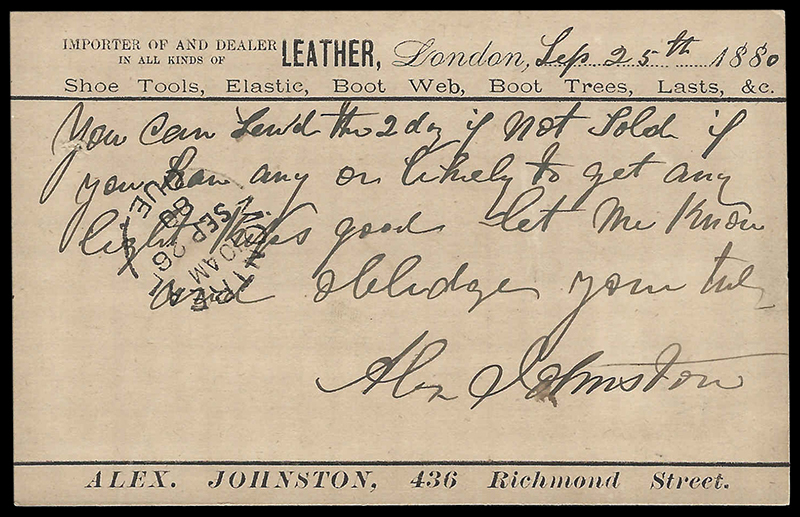 IMPORTER OF AND DEALER IN ALL KINDS OF LEATHER, London, Sep 25th 1880
Shoe Tools, Elastic, Boot Web, Boot Trees, Lasts, &c.
You can send the 2 doz if not Sold if
you have any or likely to get any
light Kips good let me Know
and obblidge your truly
Alex Johnston
MONTREAL
10 AM
SEP 26
80
QUE.
ALEX. JOHNSTON, 436 Richmond Street.